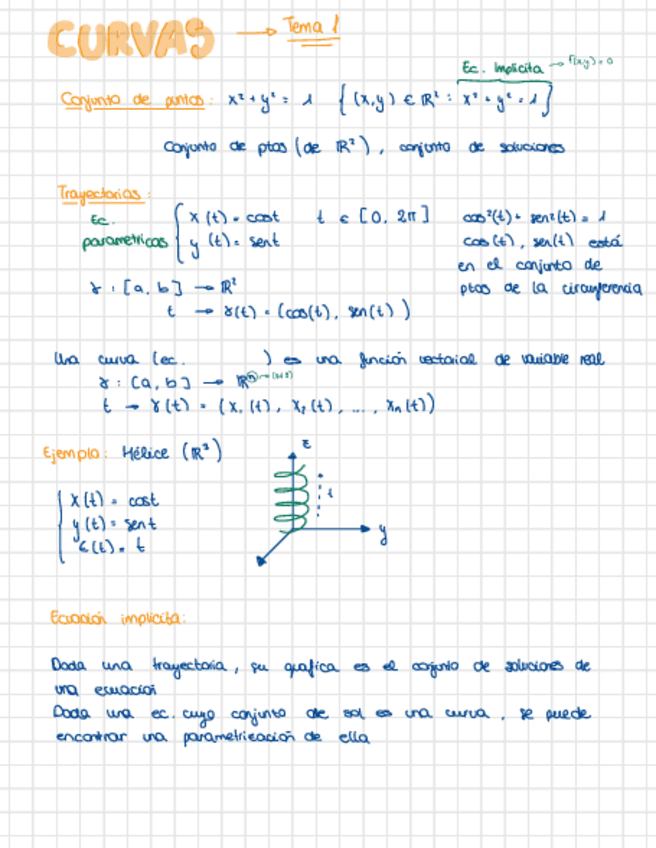 CURVAS → Tema 1
Ec. Implicita → f(x,y) = 0
Conjunto de puntos: x² + y² = 1 { (x,y) ∈ ℝ² : x² + y² = 1 }
Conjunto de ptos (de ℝ²), conjunto de soluciones
Trayectorias:
Ec. parametricas { x(t) = cost t ∈ [0, 2π]
y(t) = sent
cos²(t) + sen²(t) = 1
cos(t), sen(t) está
en el conjunto de
ptos de la circunferencia
γ : [a, b] → ℝ²
t → γ(t) = (cos(t), sen(t))
Una curva (ec. ) es una función vectorial de variable real
γ : [a, b] → ℝⁿ
t → γ(t) = (x₁(t), x₂(t), ..., xₙ(t))
Ejemplo: Hélice (ℝ³)
z
t
y
{ x(t) = cost
y(t) = sent
z(t) = t
Ecuación implicita:
Dada una trayectoria, su grafica es el conjunto de soluciones de
una ecuación
Dada una ec. cuyo conjunto de sol es una curva, se puede
encontrar una parametrización de ella